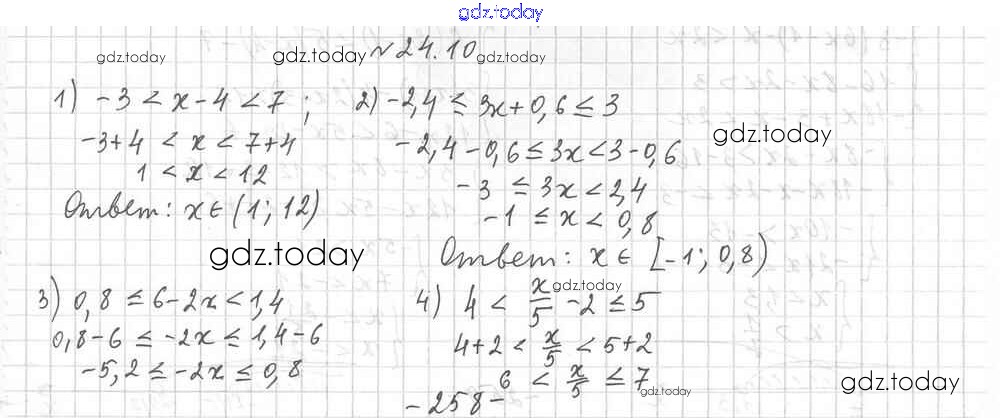 gdz.today
gdz.today gdz.today №24.10 gdz.today
1) -3 < x-4 < 7 ; 2) -2,4 ≤ 3x+0,6 ≤ 3
gdz.today
-3+4 < x < 7+4
-2,4-0,6 ≤ 3x < 3-0,6
1 < x < 12
-3 ≤ 3x < 2,4
Ответ: x ∈ (1; 12)
-1 ≤ x < 0,8
gdz.today
Ответ: x ∈ [-1; 0,8)
3) 0,8 ≤ 6-2x < 1,4
0,8-6 ≤ -2x ≤ 1,4-6
gdz.today
-5,2 ≤ -2x ≤ 0,8
4) 4 < x/5 -2 ≤ 5
gdz.today
4+2 < x/5 < 5+2
6 < x/5 ≤ 7
gdz.today
gdz.today
-258-